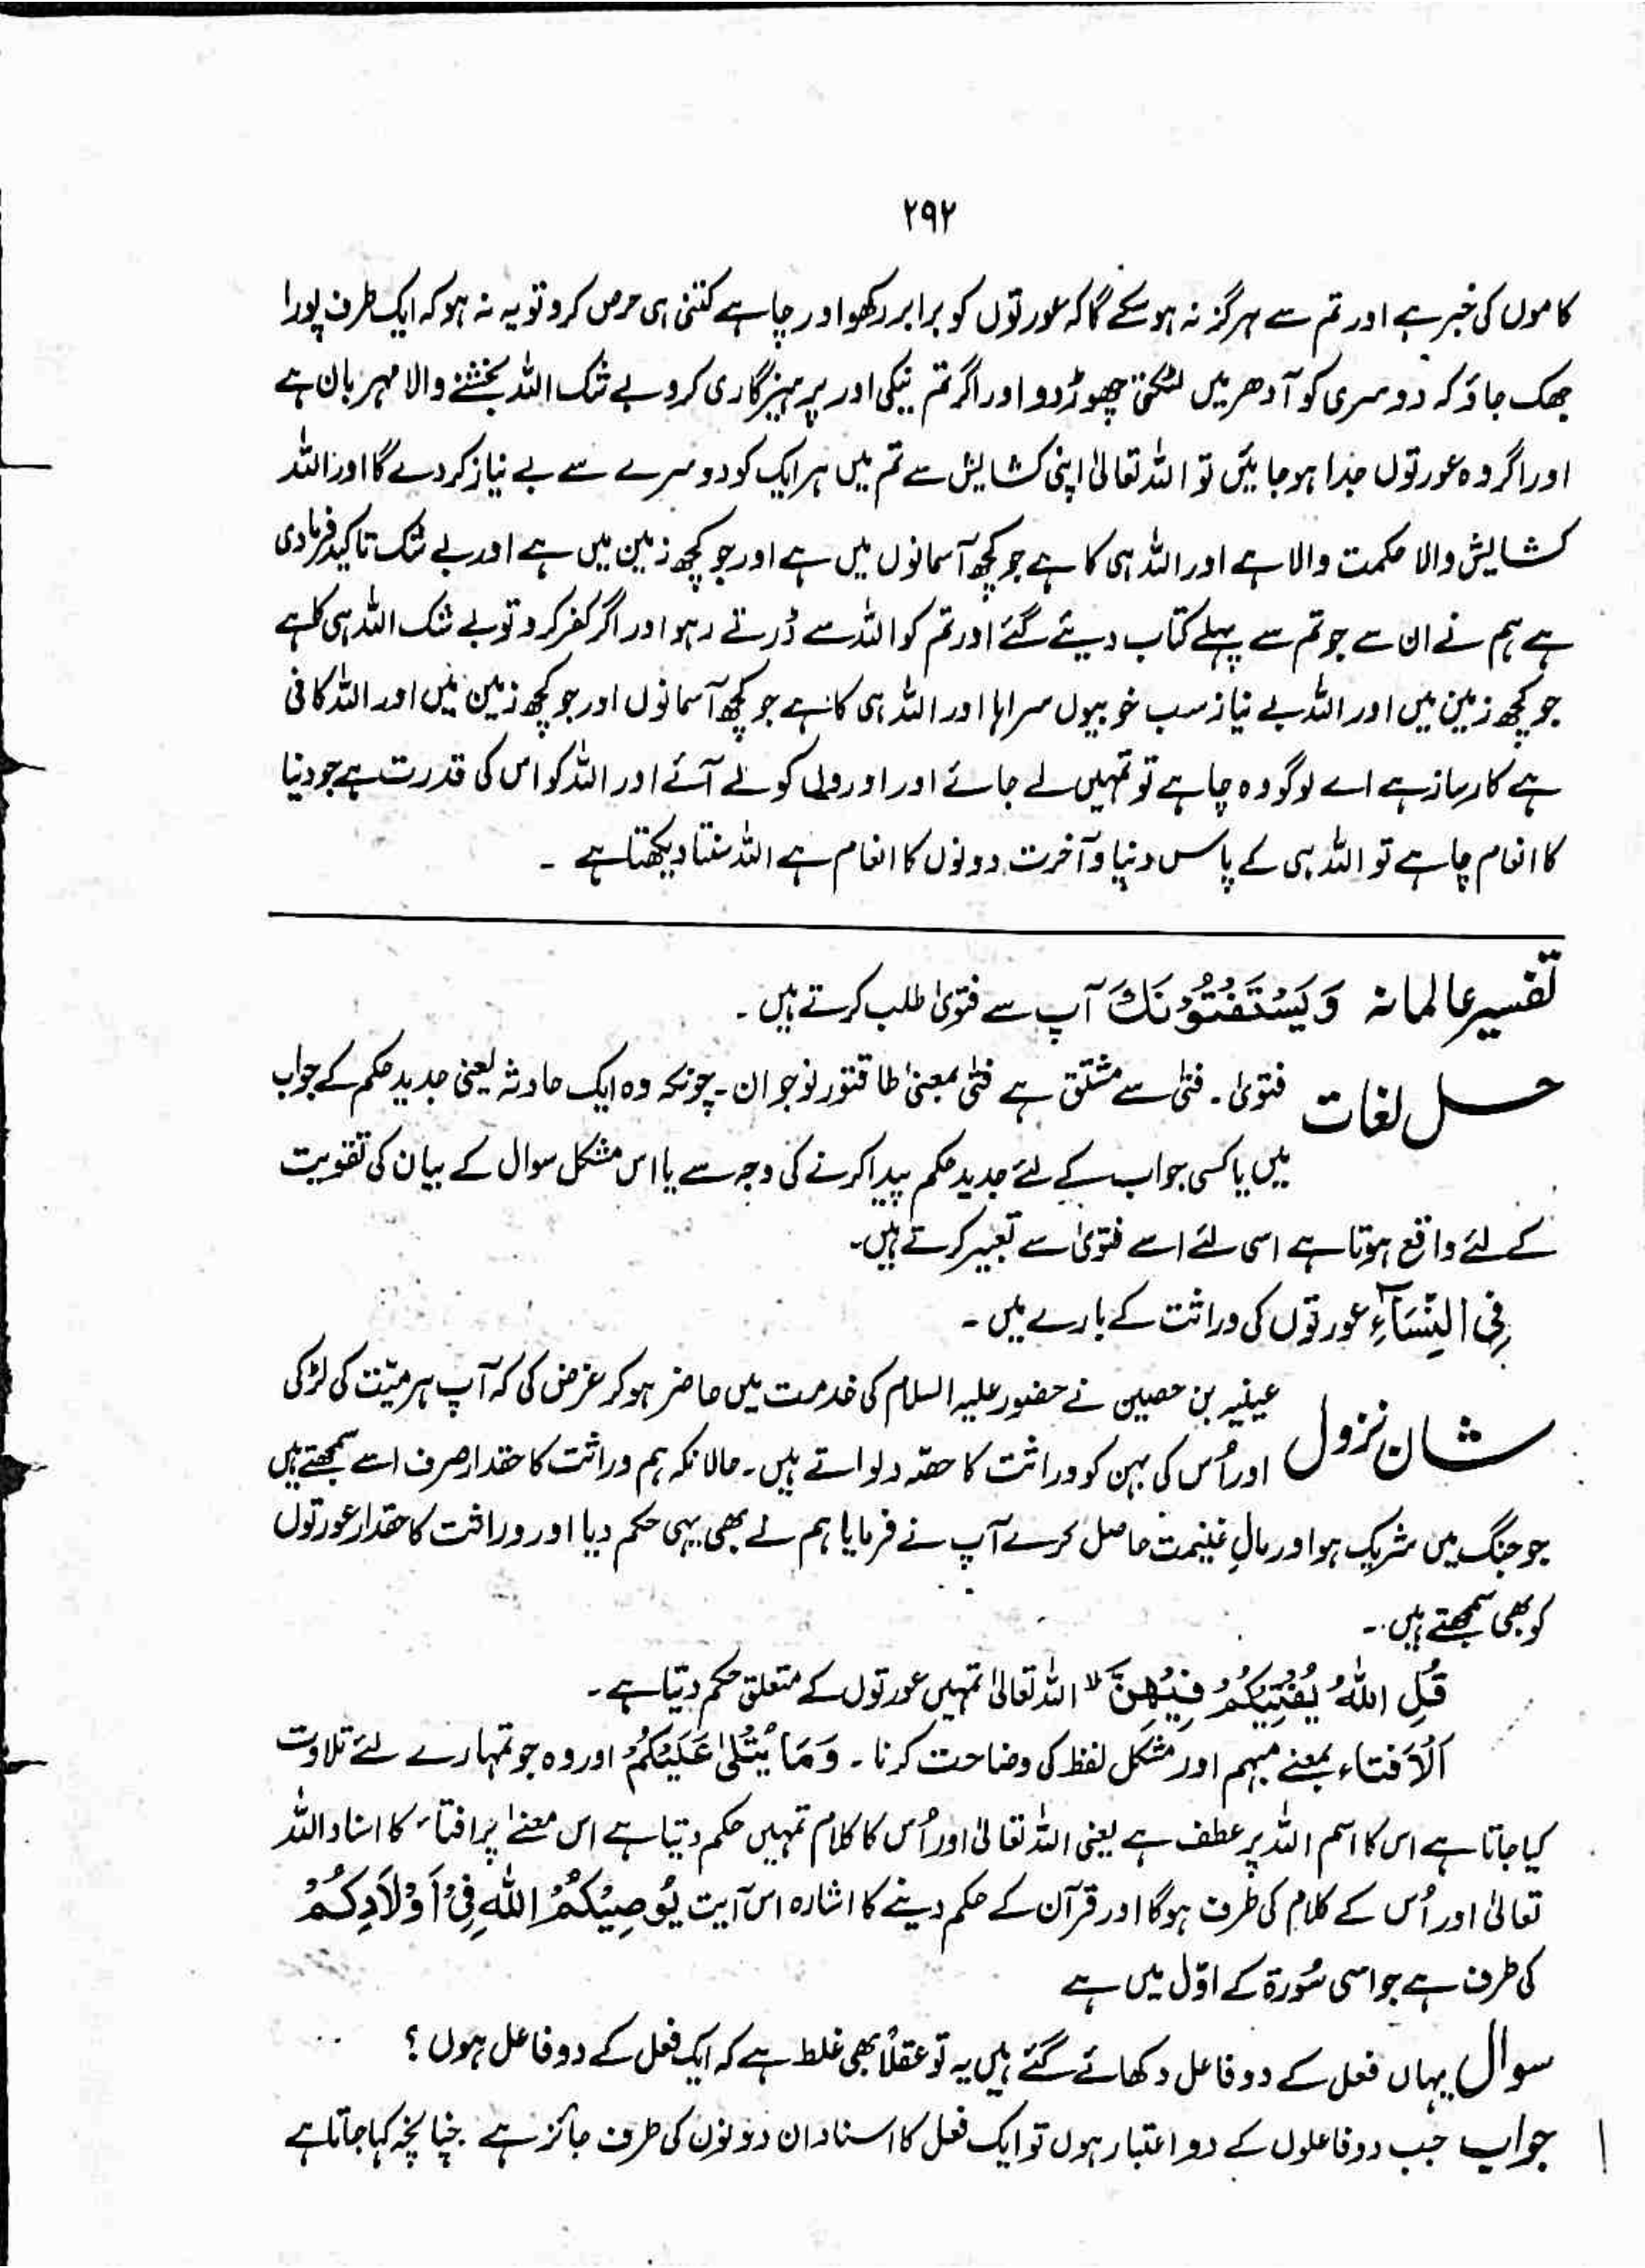 ۲۹۲
کاموں کی خبر ہے اور تم سے ہرگز نہ ہو سکے گا کہ عورتوں کو برابر رکھو اور چاہے کتنی ہی حرص کرو تو یہ نہ ہو کہ ایک طرف پورا
جھک جاؤ کہ دوسری کو آدھر میں لٹکتی چھوڑ دو اور اگر تم نیکی اور پرہیزگاری کرو بے شک اللہ بخشنے والا مہربان ہے
اور اگر وہ عورتوں جدا ہو جائیں تو اللہ تعالیٰ اپنی کشایش سے تم میں ہر ایک کو دوسرے سے بے نیاز کر دے گا اور اللہ
کشایش والا حکمت والا ہے اور اللہ ہی کا ہے جو کچھ آسمانوں میں ہے اور جو کچھ زمین میں ہے اور بے شک تاکید فرما دی
ہے ہم نے ان سے جو تم سے پہلے کتاب دیئے گئے اور تم کو اللہ سے ڈرتے رہو اور اگر کفر کرو تو بے شک اللہ ہی کا ہے
جو کچھ زمین میں اور اللہ بے نیاز سب خوبیوں سراہا اور اللہ ہی کا ہے جو کچھ آسمانوں اور جو کچھ زمین میں اور اللہ کافی
ہے کارساز ہے اے لوگو وہ چاہے تو تمہیں لے جائے اور اوروں کو لے آئے اور اللہ کو اس کی قدرت ہے جو دنیا
کا انعام چاہے تو اللہ ہی کے پاس دنیا و آخرت دونوں کا انعام ہے اللہ سنتا دیکھتا ہے ۔
تفسیر عالمانہ وَيَسْتَفْتُوْنَكَ آپ سے فتویٰ طلب کرتے ہیں ۔
حل لغات فتویٰ ۔ فتیٰ سے مشتق ہے فتیٰ بمعنیٰ طاقتور نوجوان ۔ چونکہ وہ ایک حادثہ یعنی جدید حکم کے جواب
میں یا کسی جواب کے لئے جدید حکم پیدا کرنے کی وجہ سے یا اس مشکل سوال کے بیان کی تقویت
کے لئے واقع ہوتا ہے اسی لئے اسے فتویٰ سے تعبیر کرتے ہیں۔
فِی النِّسَآءِ عورتوں کی وراثت کے بارے میں ۔
شان نزول عینیہ بن حصین نے حضور علیہ السلام کی خدمت میں حاضر ہو کر عرض کی کہ آپ ہر میّت کی لڑکی
اور اُس کی بہن کو وراثت کا حصّہ دلواتے ہیں ۔ حالانکہ ہم وراثت کا حقدار صرف اسے سمجھتے ہیں
جو جنگ میں شریک ہو اور مالِ غنیمت حاصل کرے آپ نے فرمایا ہم نے بھی یہی حکم دیا اور وراثت کا حقدار عورتوں
کو بھی سمجھتے ہیں ۔
قُلِ اللّٰهُ يُفْتِيْكُمْ فِيْهِنَّ ۙ اللہ تعالیٰ تمہیں عورتوں کے متعلق حکم دیتا ہے ۔
اَلْاَفتاء بمعنے مبہم اور مشکل لفظ کی وضاحت کرنا ۔ وَمَا يُتْلٰى عَلَيْكُمْ اور وہ جو تمہارے لئے تلاوت
کیا جاتا ہے اس کا اسم اللہ پر عطف ہے یعنی اللہ تعالیٰ اور اُس کا کلام تمہیں حکم دیتا ہے اس معنےٰ پر افتاء کا اسناد اللہ
تعالیٰ اور اُس کے کلام کی طرف ہو گا اور قرآن کے حکم دینے کا اشارہ اس آیت يُوْصِيْكُمُ اللّٰهِ فِيْ اَوْلَادِكُمْ
کی طرف ہے جو اسی سُورۃ کے اوّل میں ہے
سوال یہاں فعل کے دو فاعل دکھائے گئے ہیں یہ تو عقلاً بھی غلط ہے کہ ایک فعل کے دو فاعل ہوں ؟
جواب جب دو فاعلوں کے دو اعتبار ہوں تو ایک فعل کا اسناد ان دونوں کی طرف جائز ہے چنانچہ کہا جاتا ہے